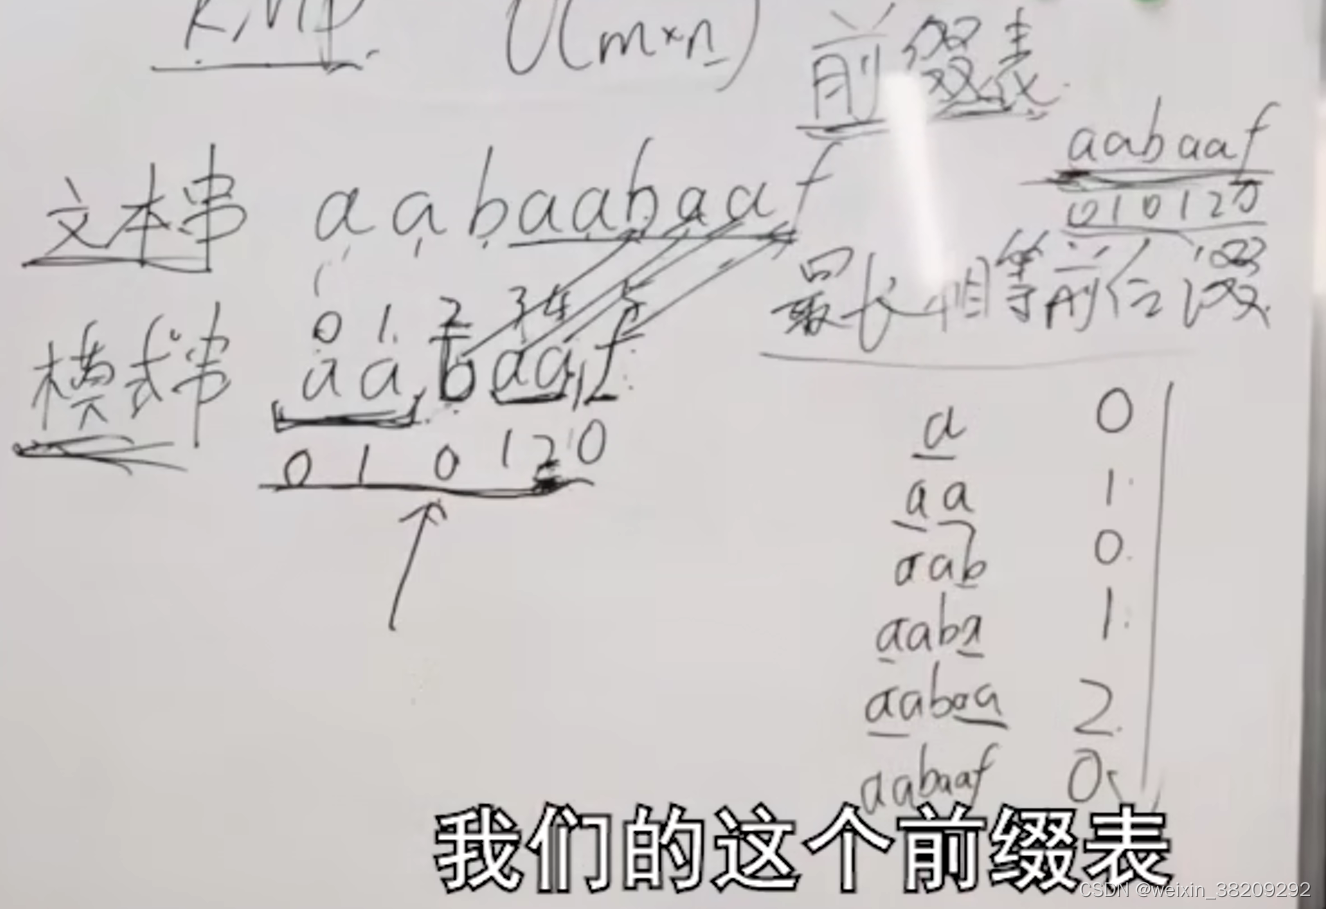 KMP O(m×n)
前缀表
aabaaf
010120
文本串 aabaabaaf
最长相等前后缀
0 1 2 3 4 5
模式串 aabaaf
0 1 0 1 2 0
a 0
aa 1
aab 0
aaba 1
aabaa 2
aabaaf 0
我们的这个前缀表
CSDN @weixin_38209292